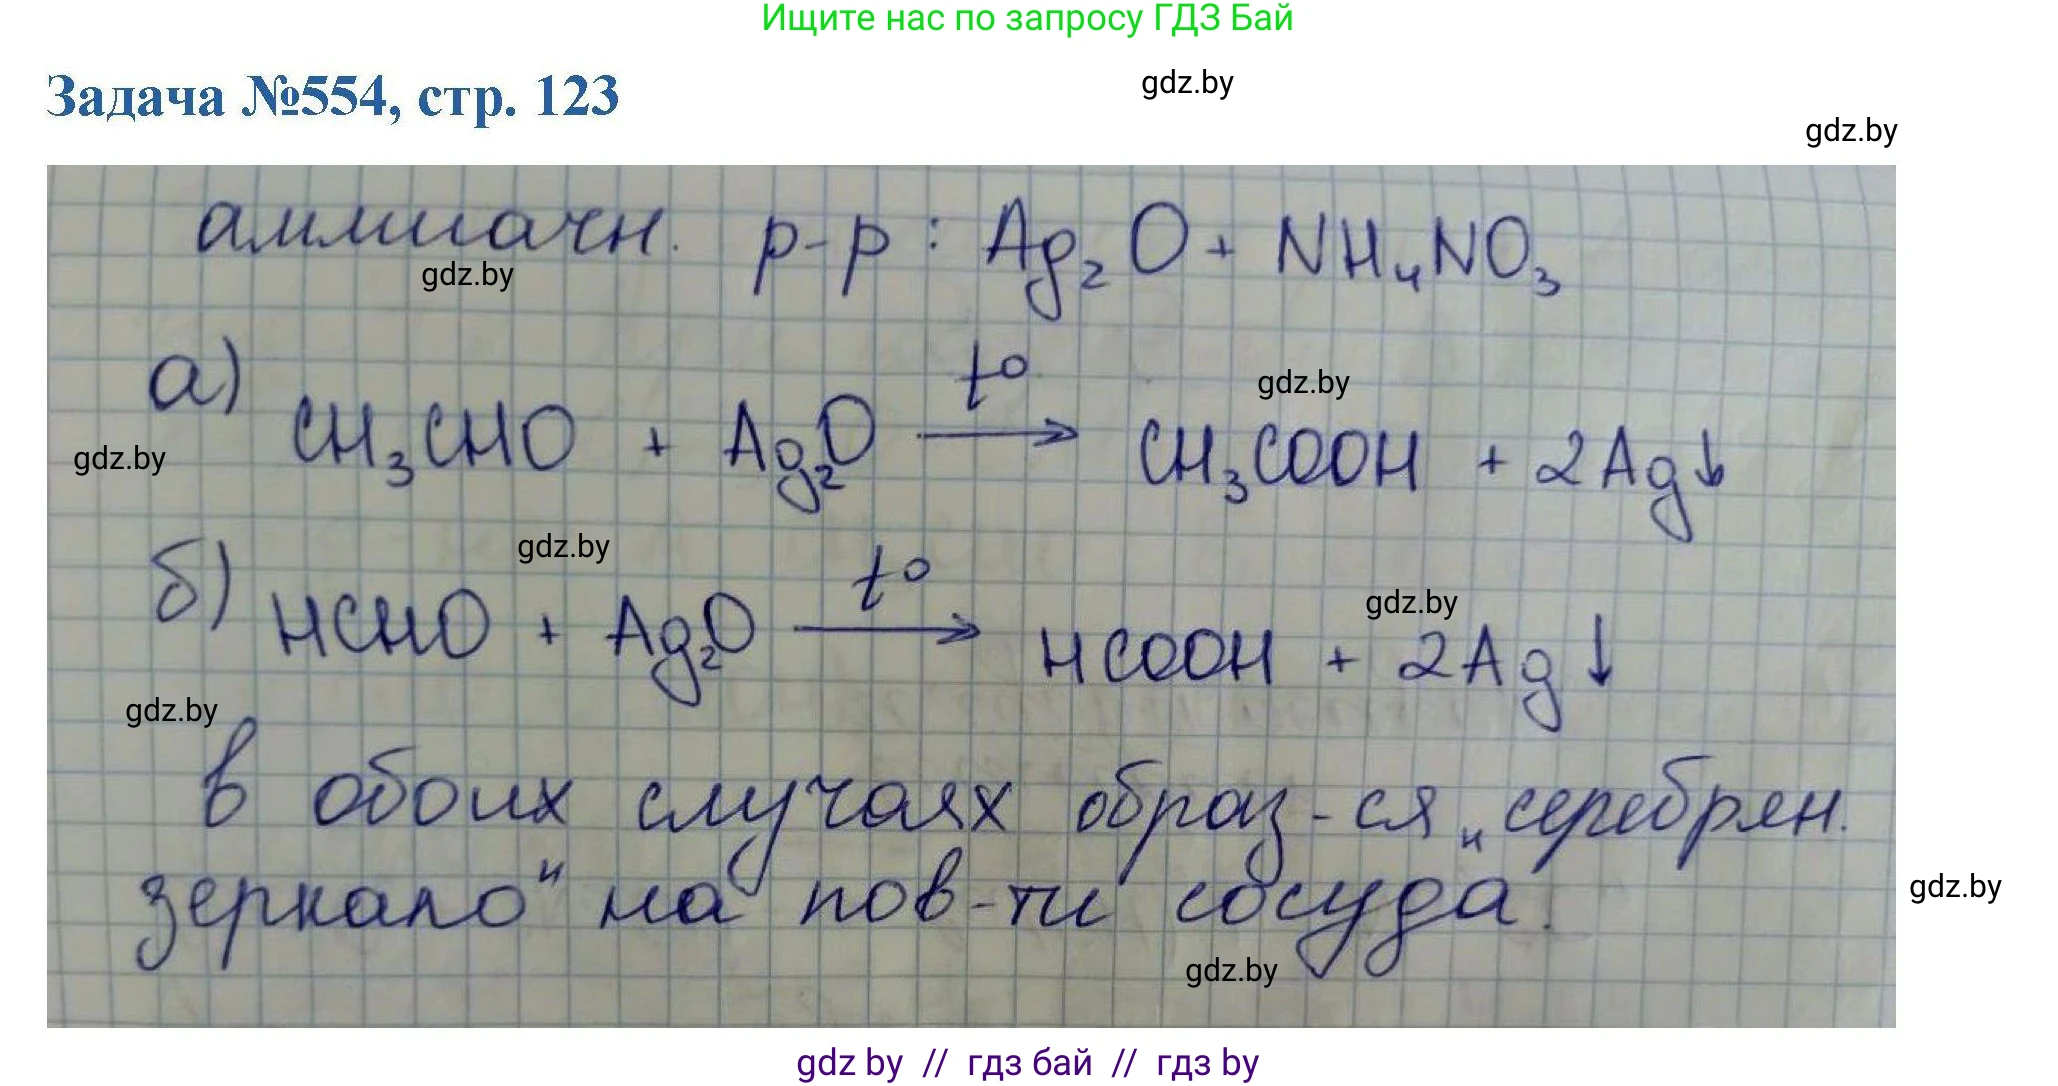 Ищите нас по запросу ГДЗ Бай
Задача №554, стр. 123
gdz.by
gdz.by
аммиачн. р-р : Ag₂O + NH₄NO₃
gdz.by
а) CH₃CHO + Ag₂O —t°→ CH₃COOH + 2Ag↓
gdz.by
gdz.by
б) HCHO + Ag₂O —t°→ HCOOH + 2Ag↓
gdz.by
gdz.by
gdz.by
в обоих случаях образ-ся „серебрян.
зеркало" на пов-ти сосуда.
gdz.by
gdz.by
gdz by // гдз бай // гдз by